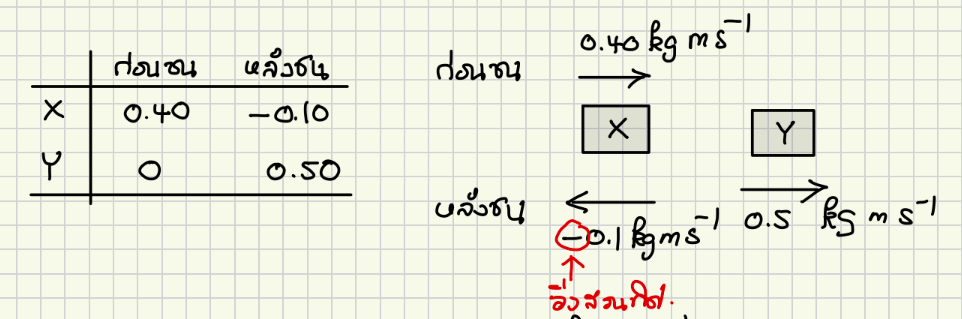 ก่อนชน หลังชน
X 0.40 -0.10
Y 0 0.50
0.40 kg m s⁻¹
ก่อนชน
X Y
หลังชน
-0.1 kg m s⁻¹ 0.5 kg m s⁻¹
วิ่งสวนทิศ.